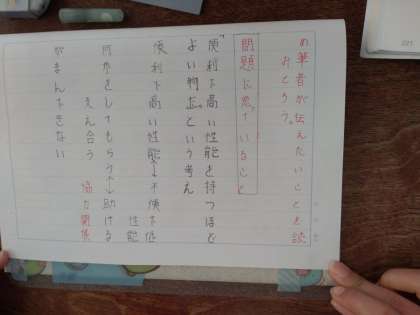 め筆者が伝えたいことを読
みとろう。
問題に思っていること
「便利で高い性能を持つほど
よい物だ」という考え
便利で高い性能↔不便で低
性能
何かをしてもらう↔助ける
支え合う
協力関係
がまんできない